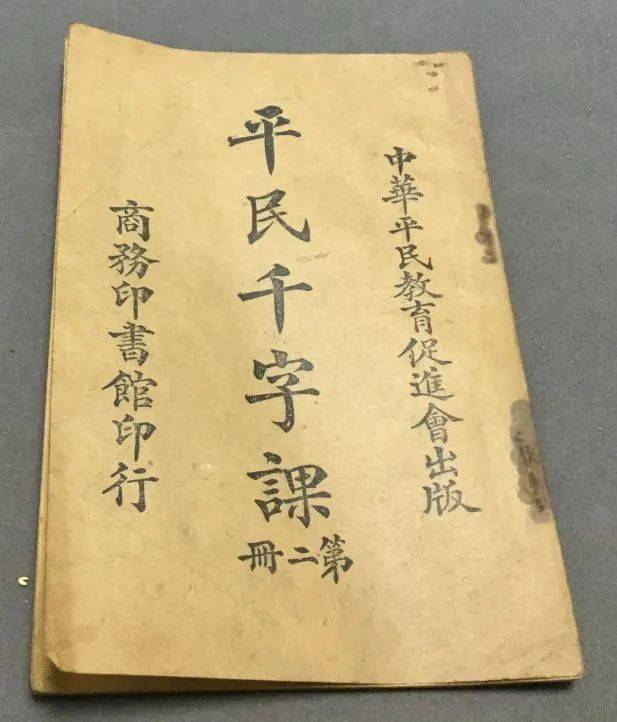 中華平民教育促進會出版
平民千字課
第二冊
商務印書館印行